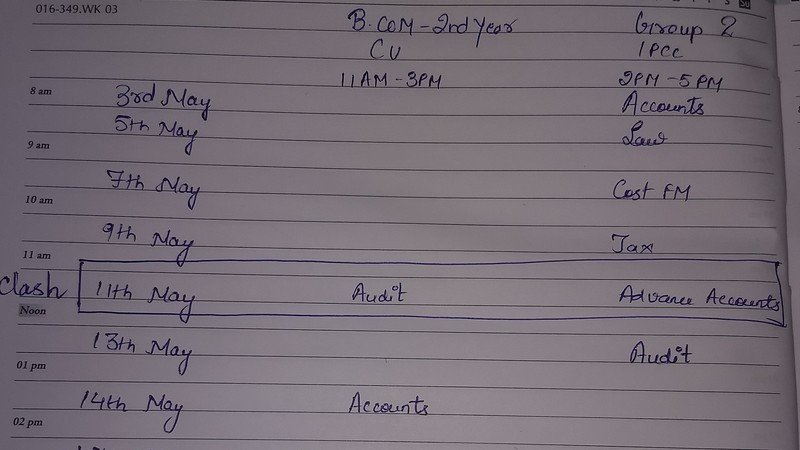 016-349.WK 03
B.COM - 2nd Year Group 2
CU IPCC
11AM - 3PM 2PM - 5PM
8 am 3rd May Accounts
5th May Law
9 am
7th May Cost FM
10 am
9th May Tax
11 am
Clash 11th May Audit Advance Accounts
Noon
13th May Audit
01 pm
14th May Accounts
02 pm